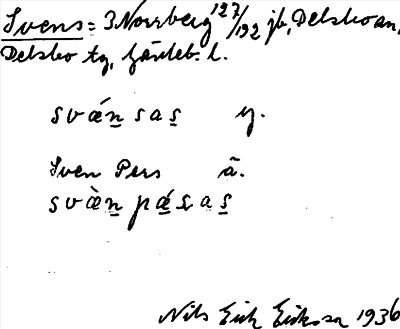 Svens = 3 Norrberg 127/192 jb, Delsboån,
Delsbo tg, Gävleb. l.
sváṉsas̱ y.
Sven Pers ä.
svàṉ pása s̱
Nils Erik Eriksson 1936